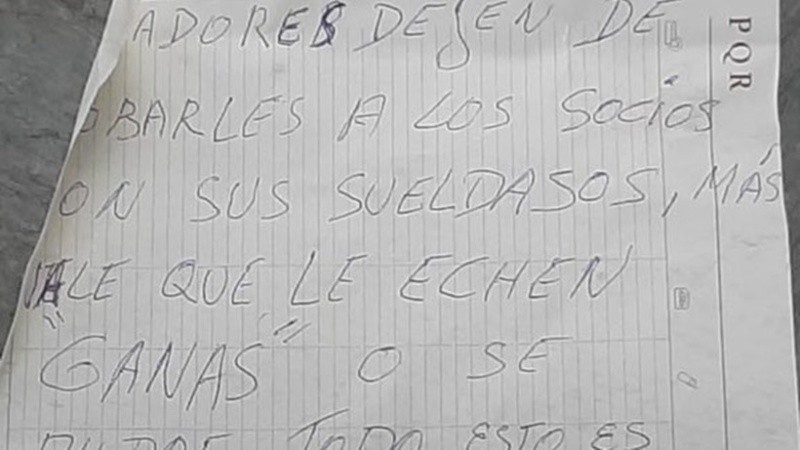 ADORES DEJEN DE
OBARLES A LOS SOCIOS
ON SUS SUELDASOS, MÁS
VALE QUE LE ECHEN
"GANAS" O SE
PUDRE TODO ESTO ES
PQR